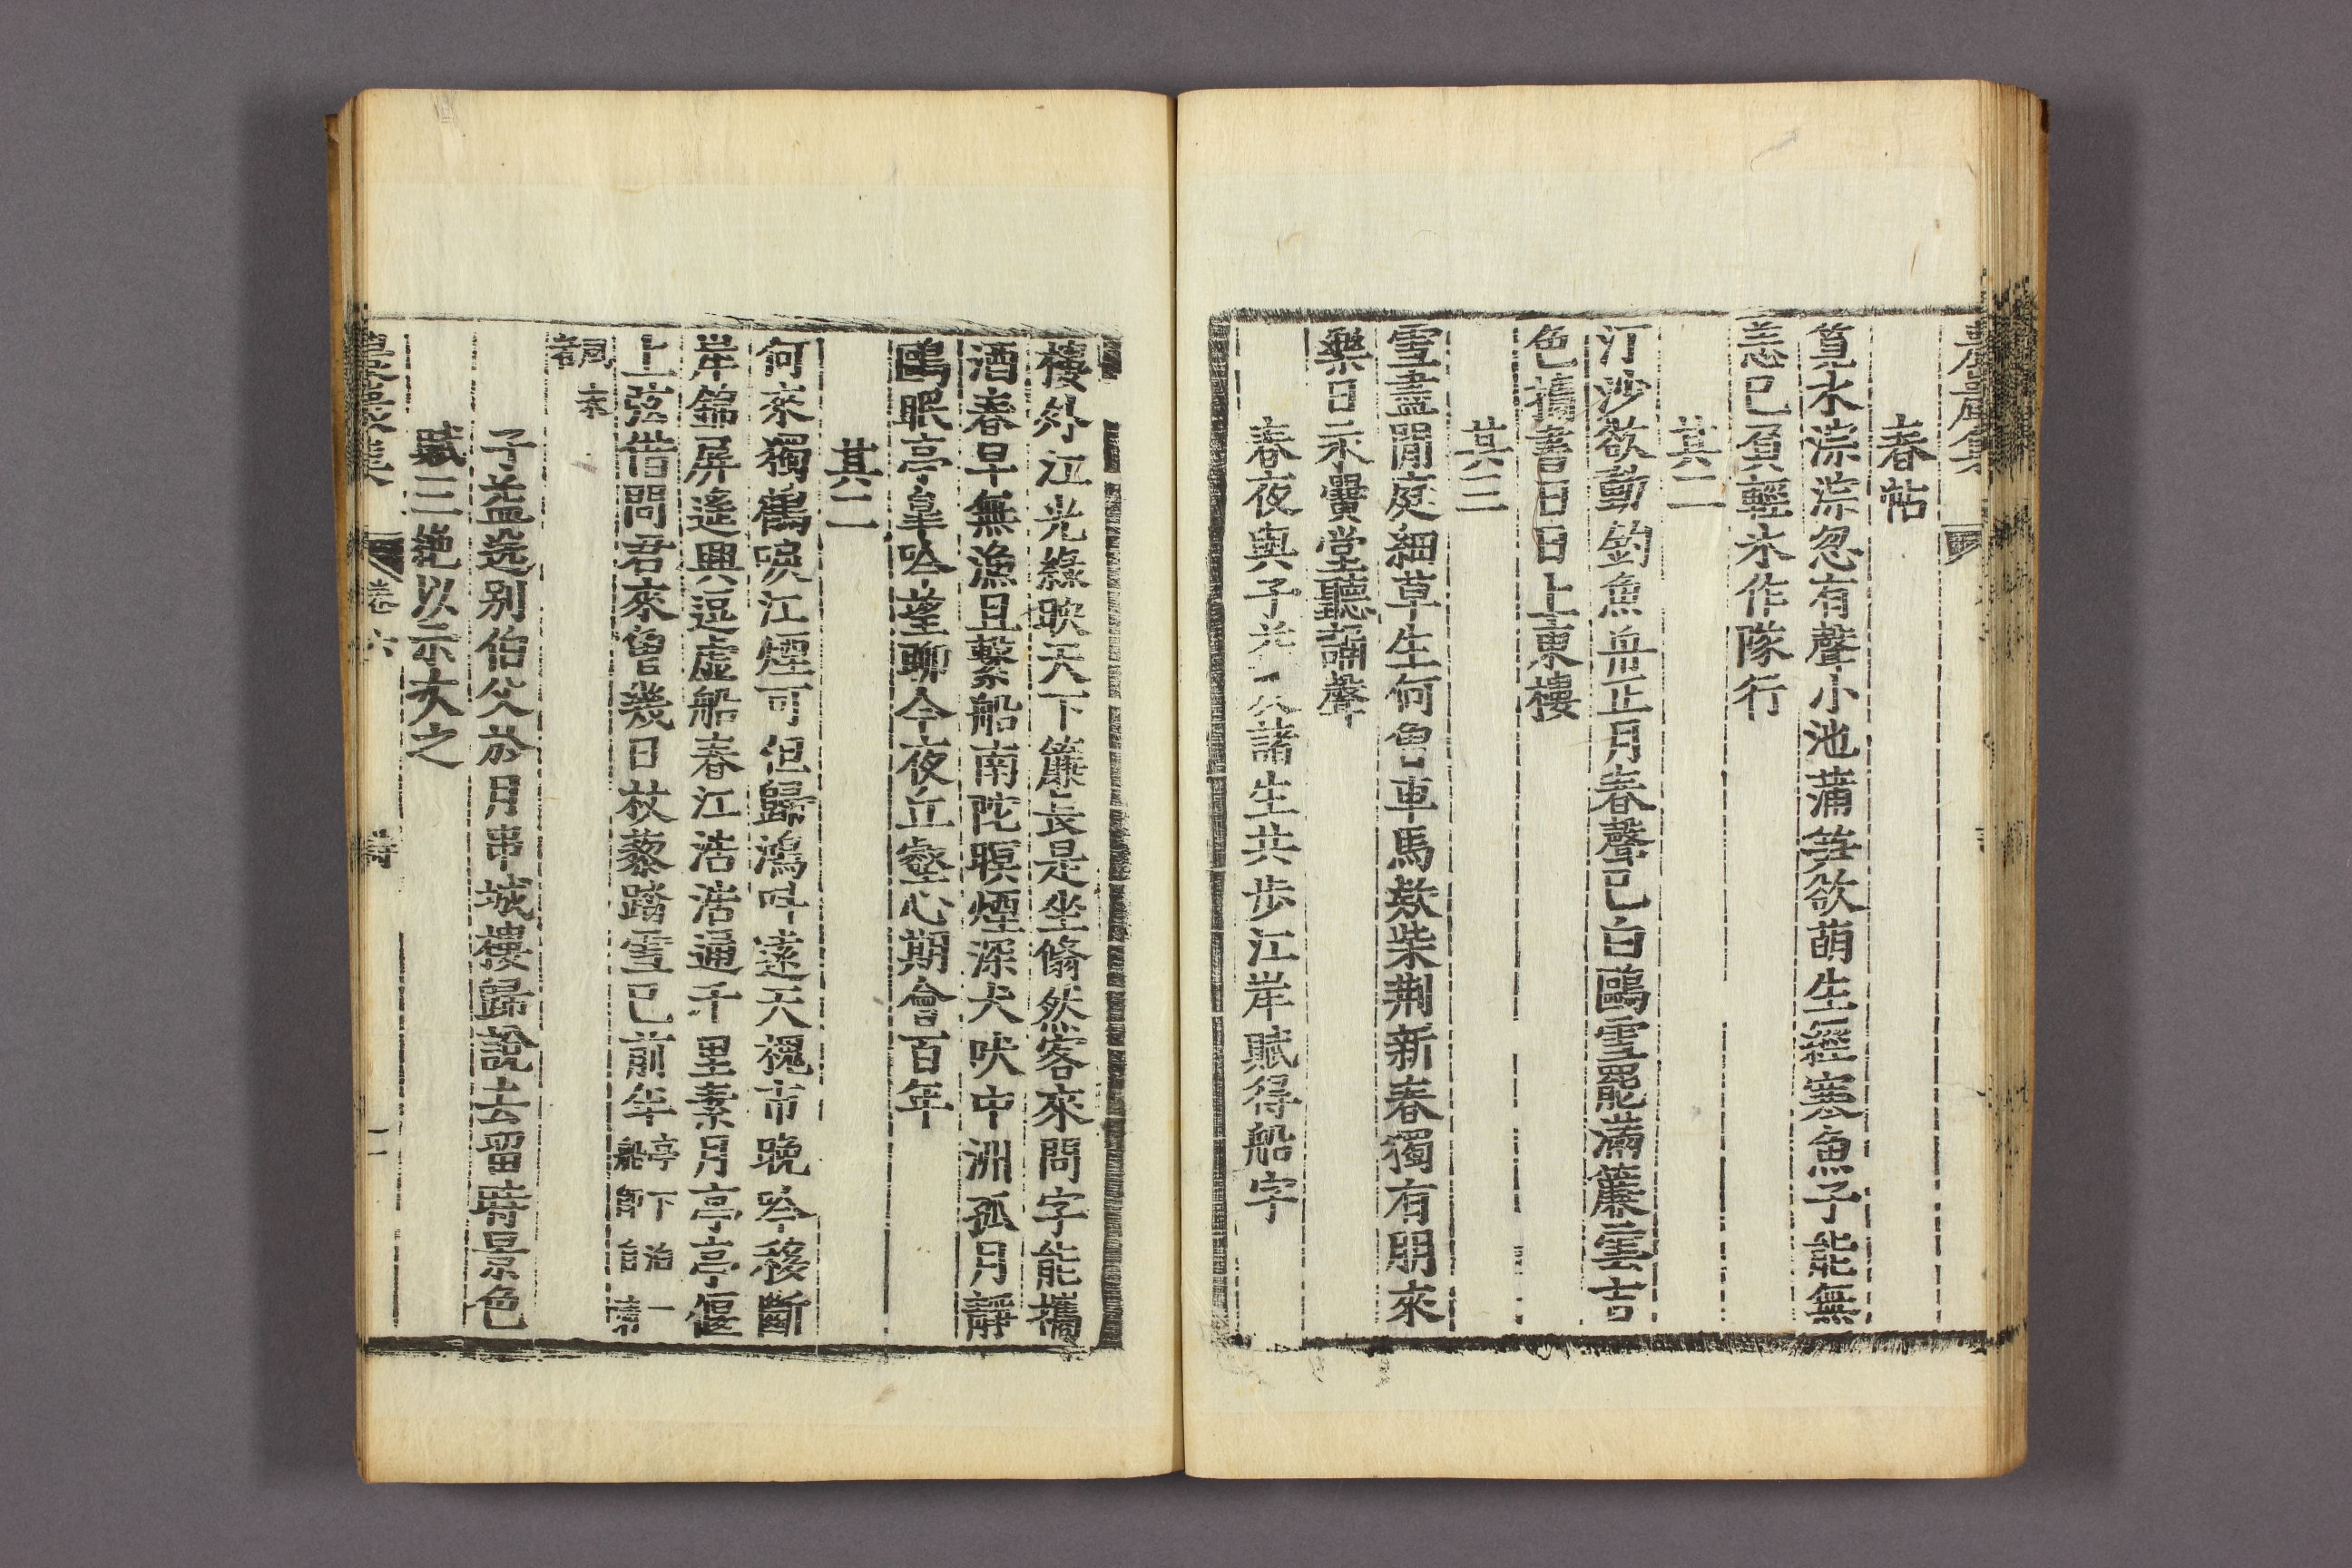 春帖
筧水淙淙忽有聲小池蒲笋欲萌生經寒魚子能無
恙已負輕氷作隊行
其二
汀沙欲動釣魚舟正月春聲已白鷗雪罷滿簾雲吉
色攜書日日上東樓
其三
雪盡閒庭細草生何曾車馬欵柴荆新春獨有朋來
樂日永黌堂聽誦聲
春夜與子益 諸生共步江岸賦得船字
樓外江光綠映天下簾長是坐翛然客來問字能攜
酒春早無漁且繫船南陀暝煙深犬吠中洲孤月靜
鷗眠亭皐吟望聊今夜丘壑心期會百年
其二
何來獨鶴唳江煙可但歸鴻呌遠天槐市晩吟移斷
岸錦屏遙興逗虛船春江浩浩通千里素月亭亭偃
上弦借問君來曾幾日杖藜踏雪已前年亭下泊一船
子益送別伯父於月串城樓歸說去留時景色
賦三絶以示大之
卷六